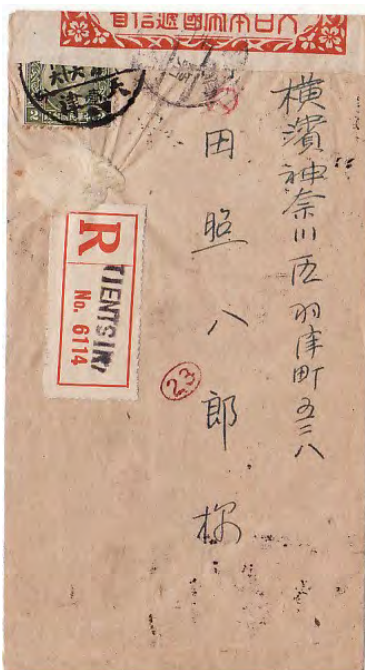 大日本帝國遞信省
横濱神奈川区羽津町五三八
田照八郎様
天津
2
R
TIENTSIN
No. 6114
23